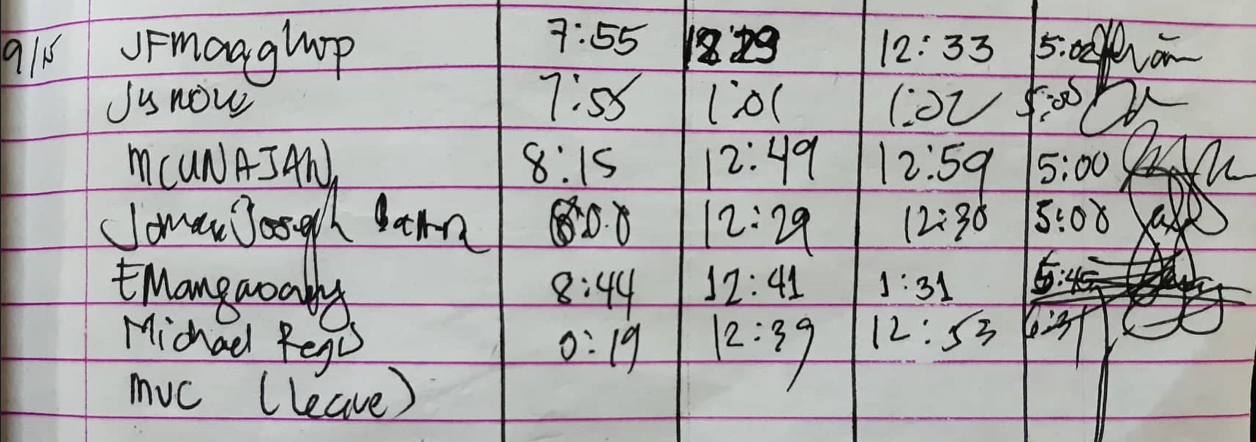 9/15 JFMaaghop 7:55 12:29 12:33 5:02
Jusnow 7:55 1:01 1:02 5:00
MCUNAJAN 8:15 12:49 12:59 5:00
Jomar Joseph 8:00 12:29 12:30 5:00
EMangaoang 8:44 12:41 1:31 5:45
Michael Regis 0:19 12:39 12:53 6:31
MVC (leave)